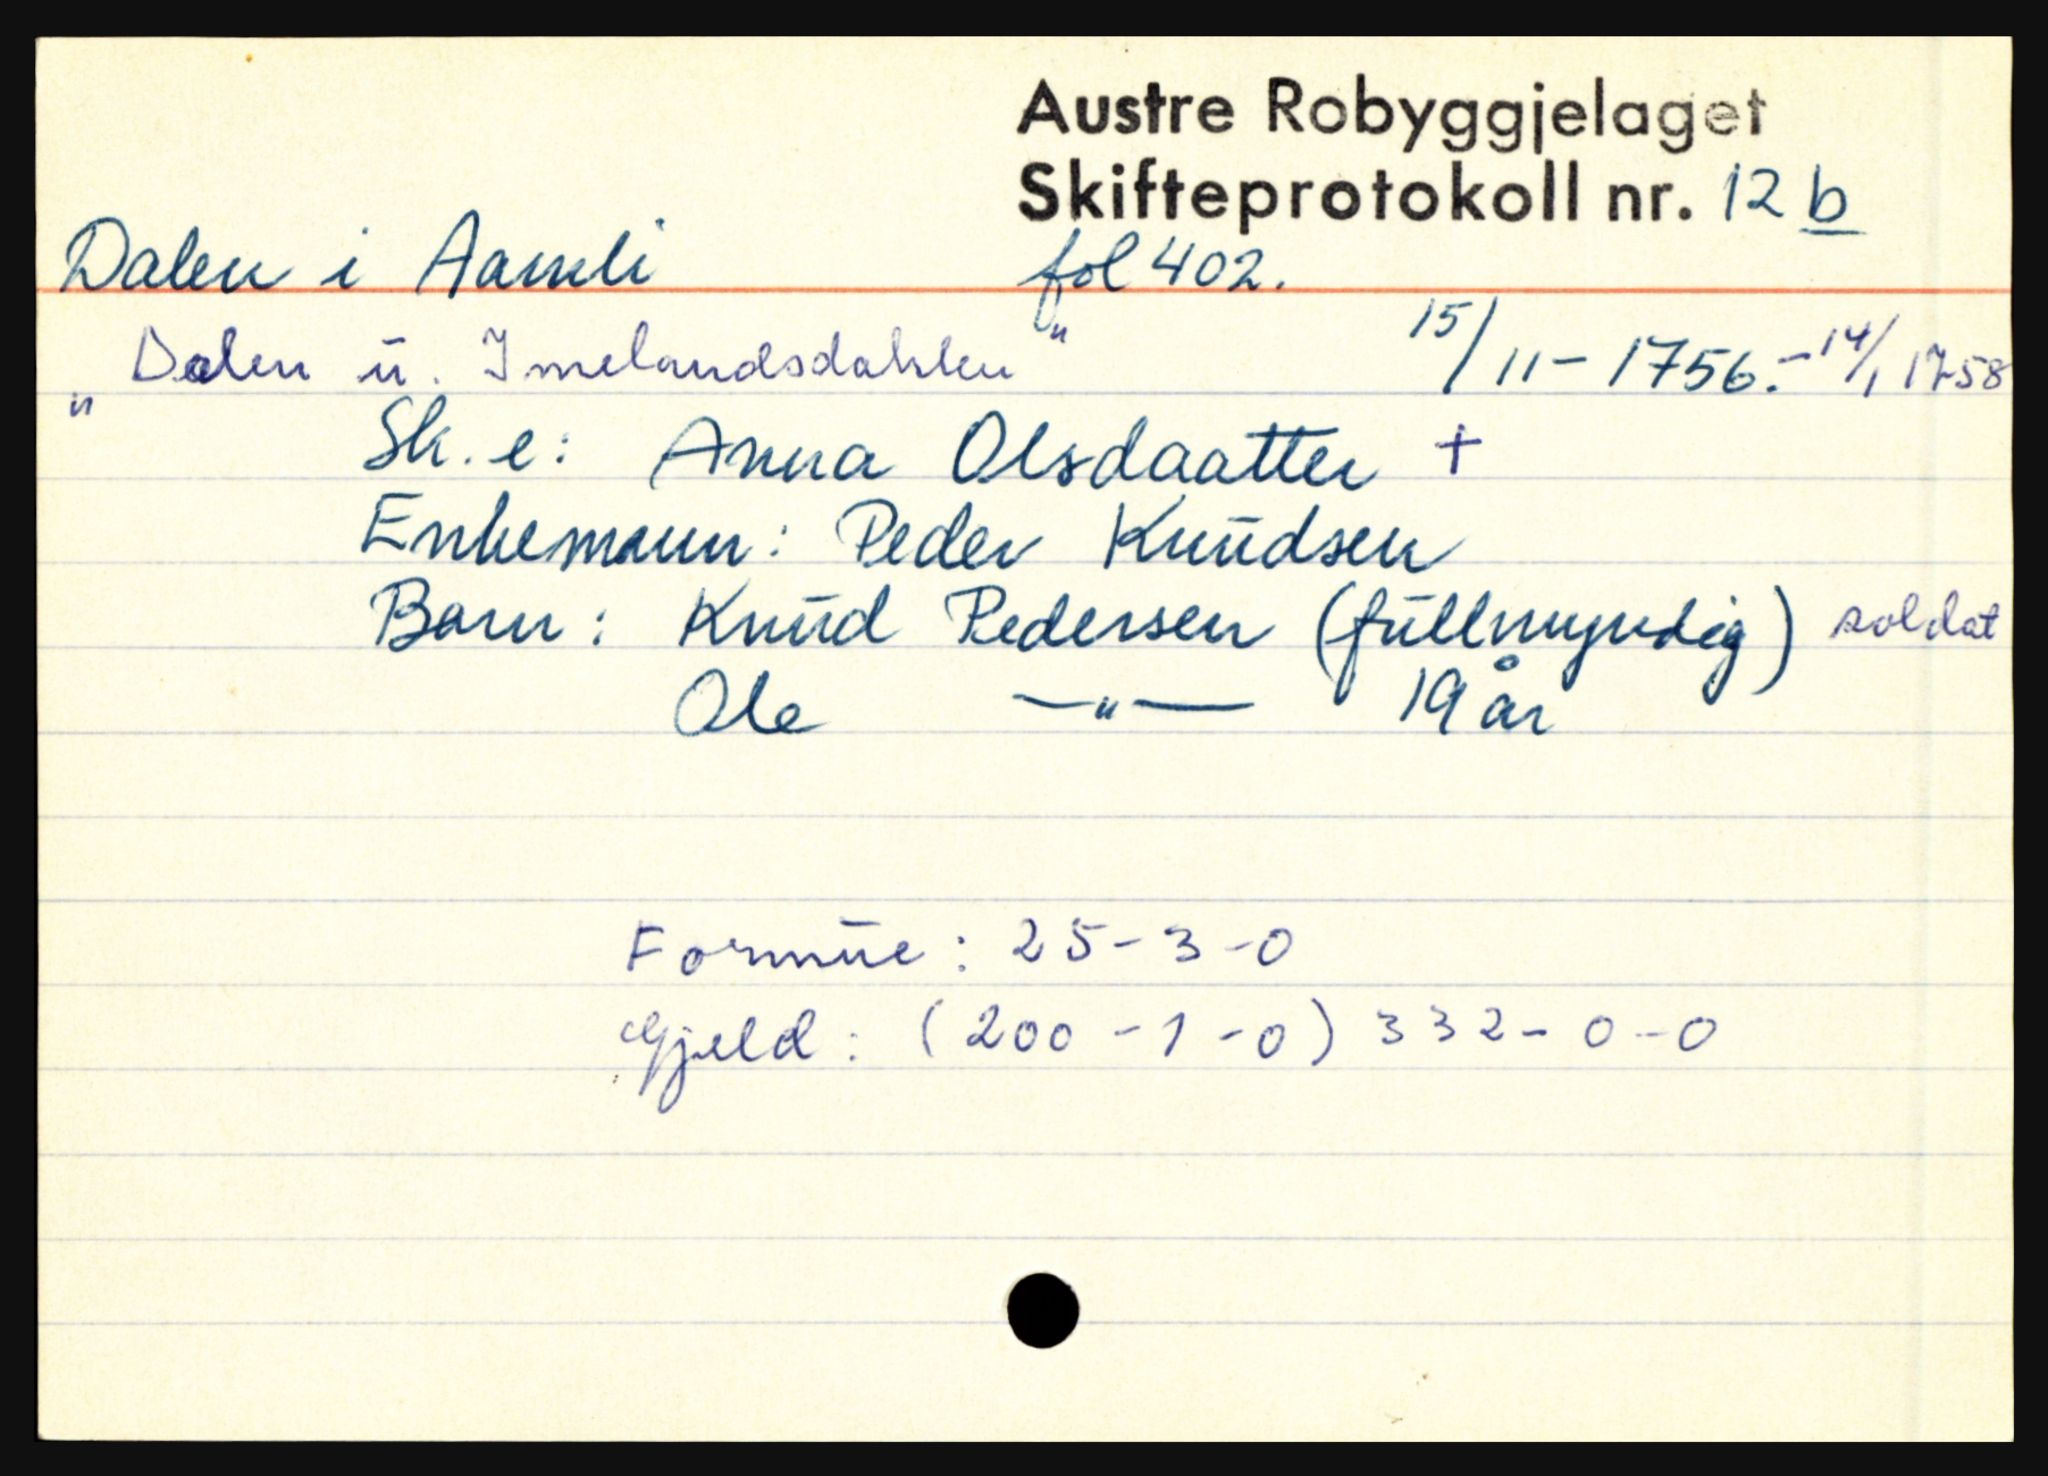 Austre Robyggjelaget
Skifteprotokoll nr. 12 b
Dalen i Aamli fol 402.
„Dalen ū. Imelandsdahlen" 15/11-1756.-14/1 1758
Sk.e: Anna Olsdaatter +
Enkemann: Peder Knūdsen
Barn: Knūd Pedersen (fūllmyndig) soldat
Ole —"— 19 år
Formūe: 25-3-0
Gjeld: (200-1-0) 332-0-0